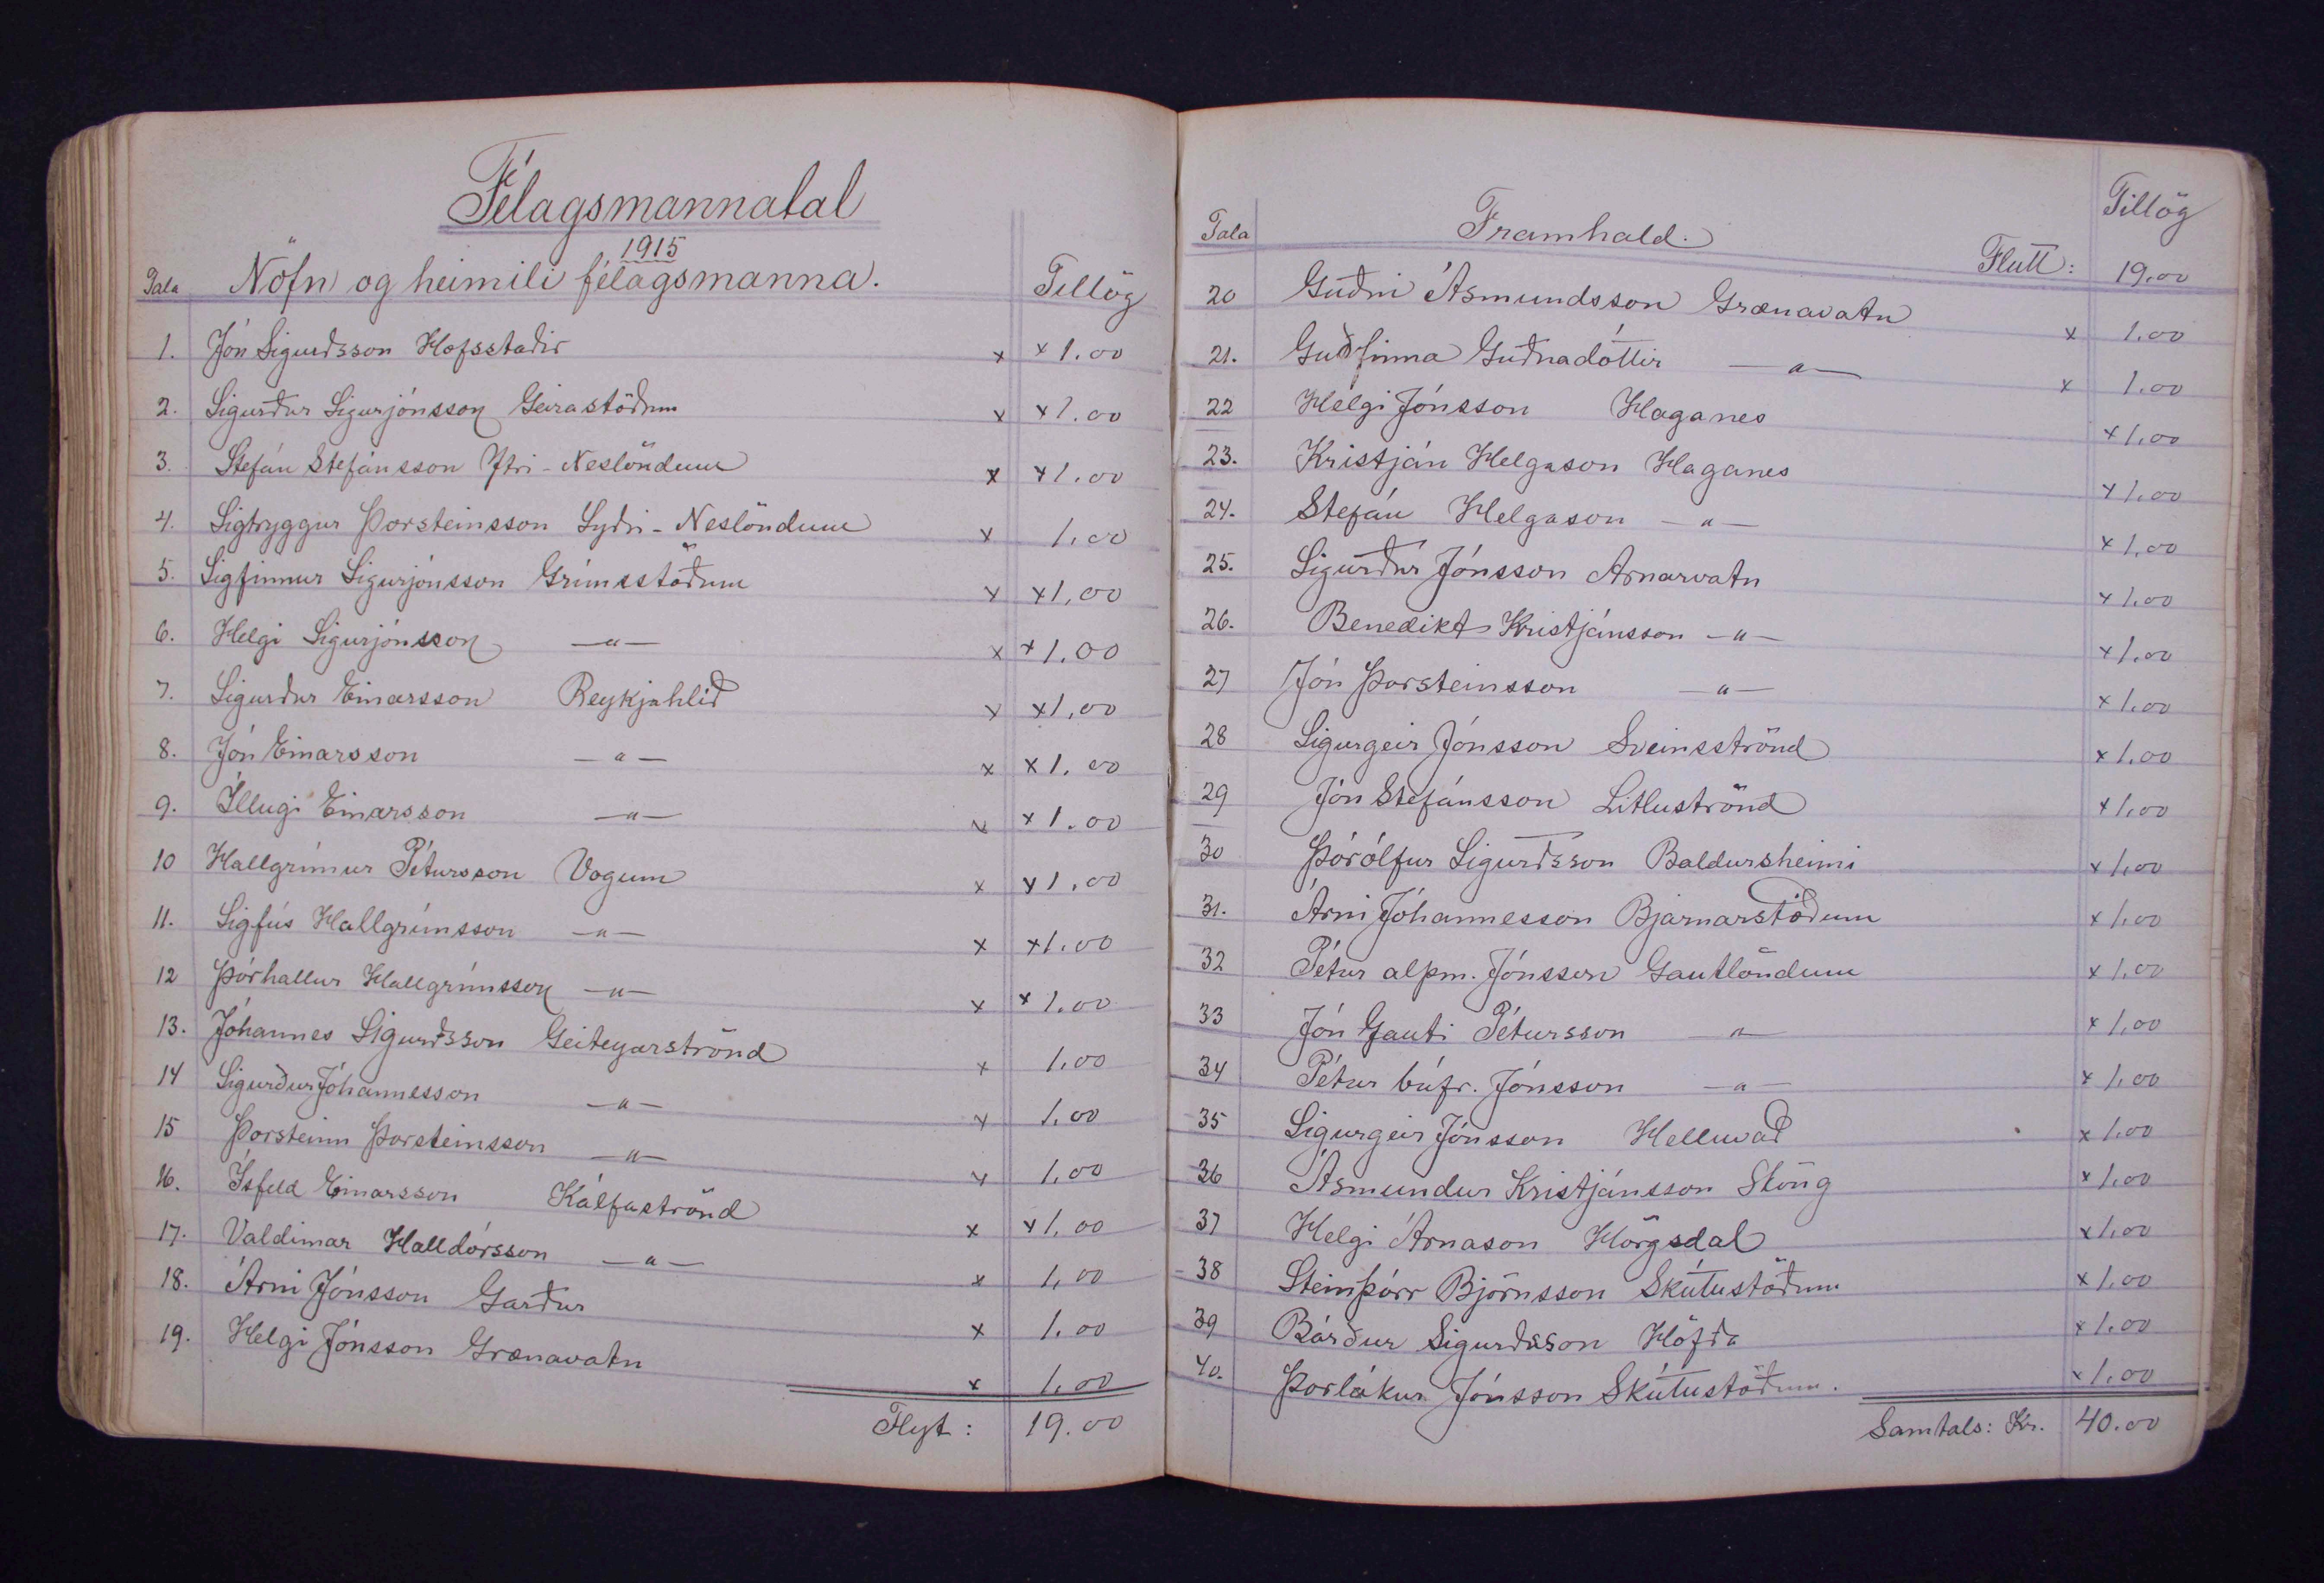 Félagsmannatal
1915
Tala Nöfn og heimili félagsmanna. Tillög
1. Jón Sigurðsson Hofsstaðir x x 1.00
2. Sigurður Sigurjónsson Geirastöðum x x 1.00
3. Stefán Stefánsson Ytri-Neslöndum x x 1.00
4. Sigtryggur Þorsteinsson Syðri-Neslöndum x 1.00
5. Sigfinnur Sigurjónsson Grímsstöðum x x 1.00
6. Helgi Sigurjónsson —„— x x 1.00
7. Sigurður Einarsson Reykjahlíð x x 1.00
8. Jón Einarsson —„— x x 1.00
9. Illugi Einarsson —„— x x 1.00
10 Hallgrímur Pétursson Vogum x x 1.00
11. Sigfús Hallgrímsson —„— x x 1.00
12 Þórhallur Hallgrímsson —„— x x 1.00
13. Jóhannes Sigurðsson Geiteyarströnd x 1.00
14 Sigurður Jóhannesson —„— x 1.00
15 Þorsteinn Þorsteinsson —„— x 1.00
16. Ísfeld Einarsson Kálfaströnd x x 1.00
17. Valdimar Halldórsson —„— x 1.00
18. Árni Jónsson Garður x 1.00
19. Helgi Jónsson Grænavatn x 1.00
Flyt: 19.00
Tala Framhald. Tillög
Flutt: 19.00
20 Guðni Ásmundsson Grænavatn x 1.00
21. Guðfinna Guðnadóttir —„— x 1.00
22 Helgi Jónsson Haganes x 1.00
23. Kristján Helgason Haganes x 1.00
24. Stefán Helgason —„— x 1.00
25. Sigurður Jónsson Arnarvatn x 1.00
26. Benedikt Kristjánsson —„— x 1.00
27 Jón Þorsteinsson —„— x 1.00
28 Sigurgeir Jónsson Sveinsströnd x 1.00
29 Jón Stefánsson Litluströnd x 1.00
30 Þórólfur Sigurðsson Baldursheimi x 1.00
31. Árni Jóhannesson Bjarnarstöðum x 1.00
32 Pétur alþm. Jónsson Gautlöndum x 1.00
33 Jón Gauti Pétursson —„— x 1.00
34 Pétur búfr. Jónsson —„— x 1.00
35 Sigurgeir Jónsson Helluvað x 1.00
36 Ásmundur Kristjánsson Stöng x 1.00
37 Helgi Árnason Hörgsdal x 1.00
38 Steinþórr Björnsson Skútustöðum x 1.00
39 Bárður Sigurðsson Höfða x 1.00
40. Þorlákur Jónsson Skútustöðum. x 1.00
Samtals: Kr. 40.00